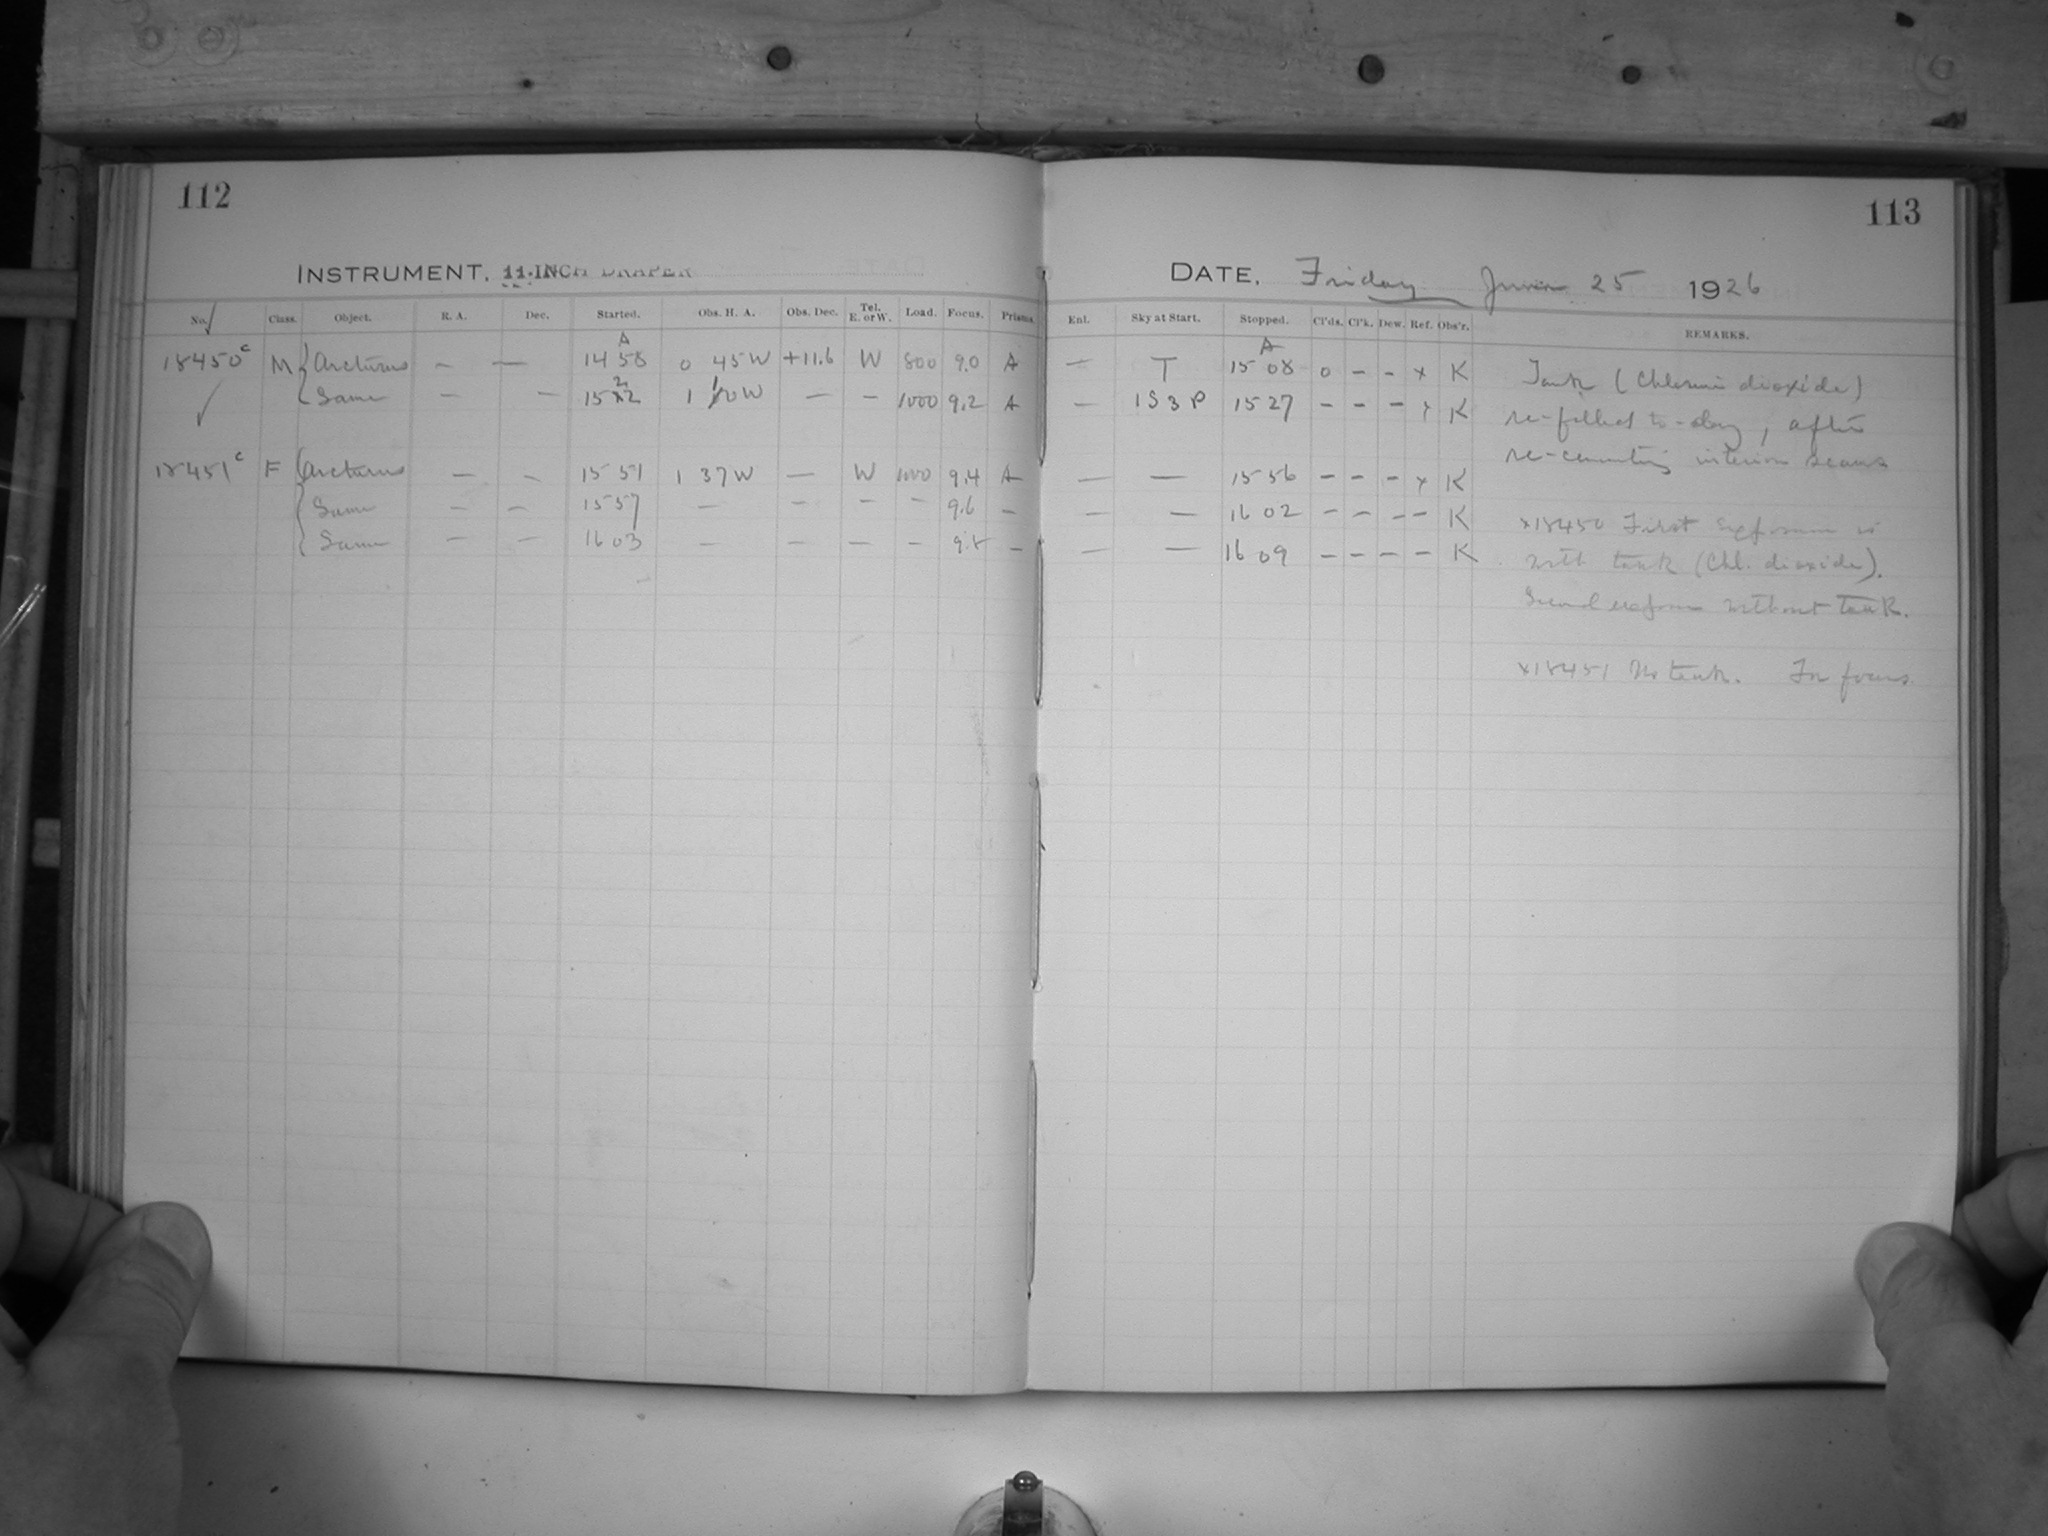 112
113
INSTRUMENT, 11-INCH DRAPER
DATE, Friday June 25 1926
No. Class. Object. R. A. Dec. Started. Obs. H. A. Obs. Dec. Tel. E. or W. Load. Focus. Prisms. Enl. Sky at Start. Stopped. Cl'ds. Cl'k. Dew. Ref. Obs'r. REMARKS.
A A
18450c M { Arcturus — — 14 58 0 45 W +11.6 W 800 9.0 A — T 15 08 0 - - x K Tank (Chlorine dioxide)
Same — — 15 22 1 10 W — — 1000 9.2 A — 1S3P 15 27 - - - x K re-filled to-day, after
re-cementing interior seams
18451c F { Arcturus — — 15 51 1 37 W — W 1000 9.4 A — — 15 56 - - - x K
Same — — 15 57 — — — — 9.6 — — — 16 02 - - - - K x18450 First exposure is
Same — — 16 03 — — — — 9.8 — — — 16 09 - - - - K with tank (Chl. dioxide).
Second exposure without tank.
x18451 No tank. For focus.